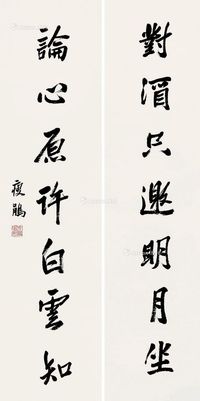 對酒只邀明月坐
論心原許白雲知
瘦鵑